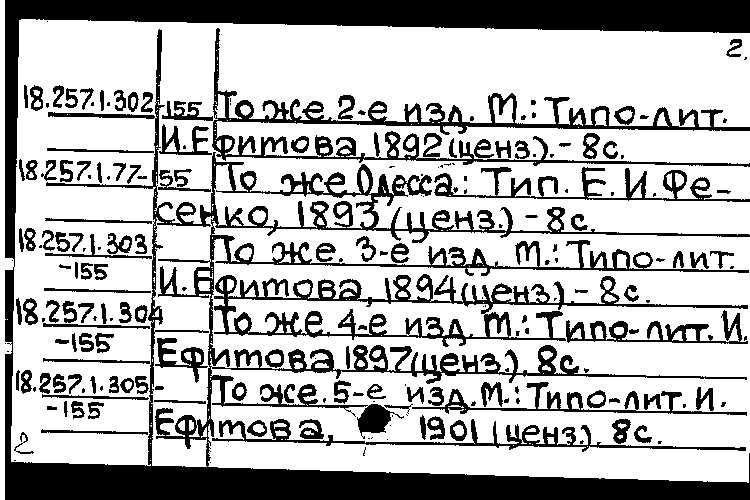 2.
18.257.1.302-155 То же. 2-е изд. М.: Типо-лит.
И. Ефитова, 1892 (ценз.). - 8с.
18.257.1.77-155 То же. Одесса.: Тип. Е. И. Фе-
сенко, 1893 (ценз.) - 8с.
18.257.1.303- То же. 3-е изд. М.: Типо-лит.
-155 И. Ефитова, 1894 (ценз.). - 8с.
18.257.1.304 То же. 4-е изд. М.: Типо-лит. И.
-155 Ефитова, 1897 (ценз.). 8с.
18.257.1.305- То же. 5-е изд. М.: Типо-лит. И.
-155 Ефитова, 1901 (ценз.). 8с.
2